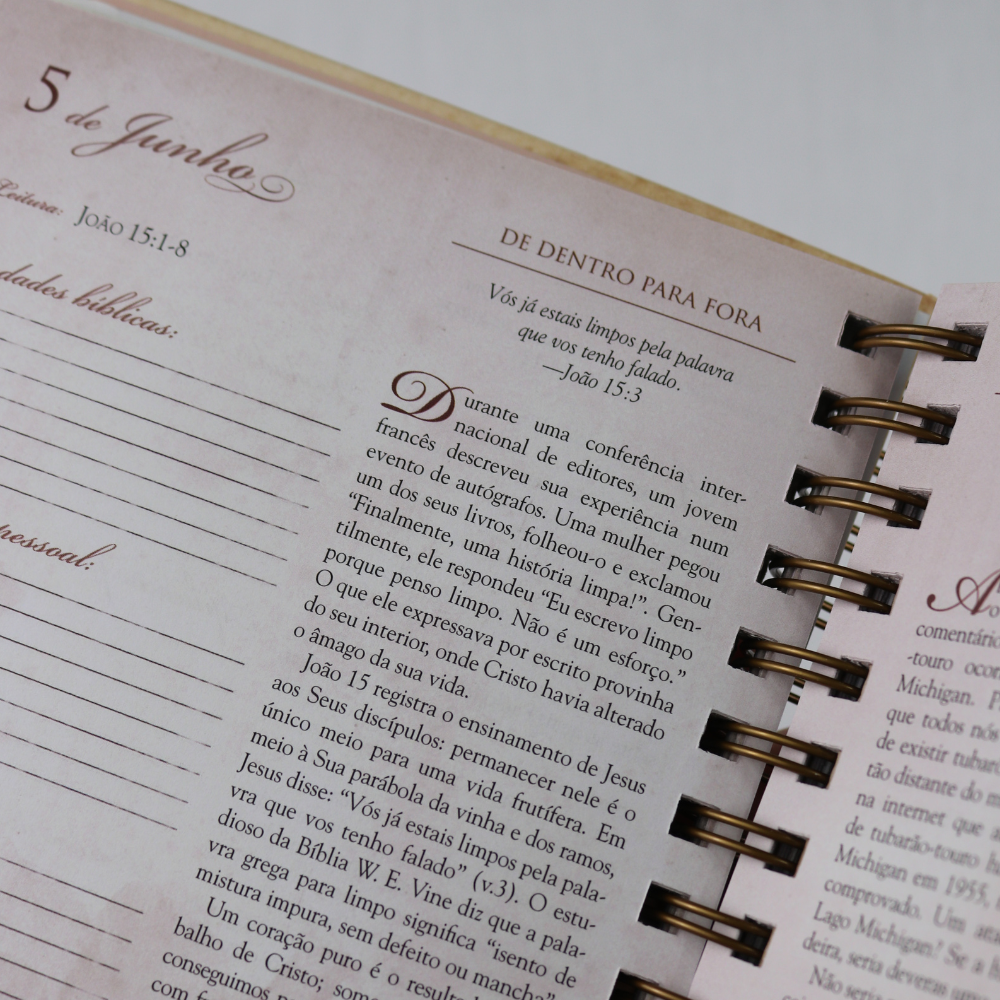 5 de Junho
Leitura: João 15:1-8
dades bíblicas:
pessoal:
DE DENTRO PARA FORA
Vós já estais limpos pela palavra
que vos tenho falado.
—João 15:3
Durante uma conferência inter-
nacional de editores, um jovem
francês descreveu sua experiência num
evento de autógrafos. Uma mulher pegou
um dos seus livros, folheou-o e exclamou
“Finalmente, uma história limpa!”. Gen-
tilmente, ele respondeu “Eu escrevo limpo
porque penso limpo. Não é um esforço.”
O que ele expressava por escrito provinha
do seu interior, onde Cristo havia alterado
o âmago da sua vida.
João 15 registra o ensinamento de Jesus
aos Seus discípulos: permanecer nele é o
único meio para uma vida frutífera. Em
meio à Sua parábola da vinha e dos ramos,
Jesus disse: “Vós já estais limpos pela pala-
vra que vos tenho falado” (v.3). O estu-
dioso da Bíblia W. E. Vine diz que a pala-
vra grega para limpo significa “isento de
mistura impura, sem defeito ou mancha”.
Um coração puro é o
balho de Cristo;
conseguimos
com
Ao
comentário
-touro
Michigan.
que todos nós
de existir
tão distante do
na internet que
de tubarão-touro
Michigan em 1955,
comprovado. Um
Lago Michigan? Se a
deira, seria
Não